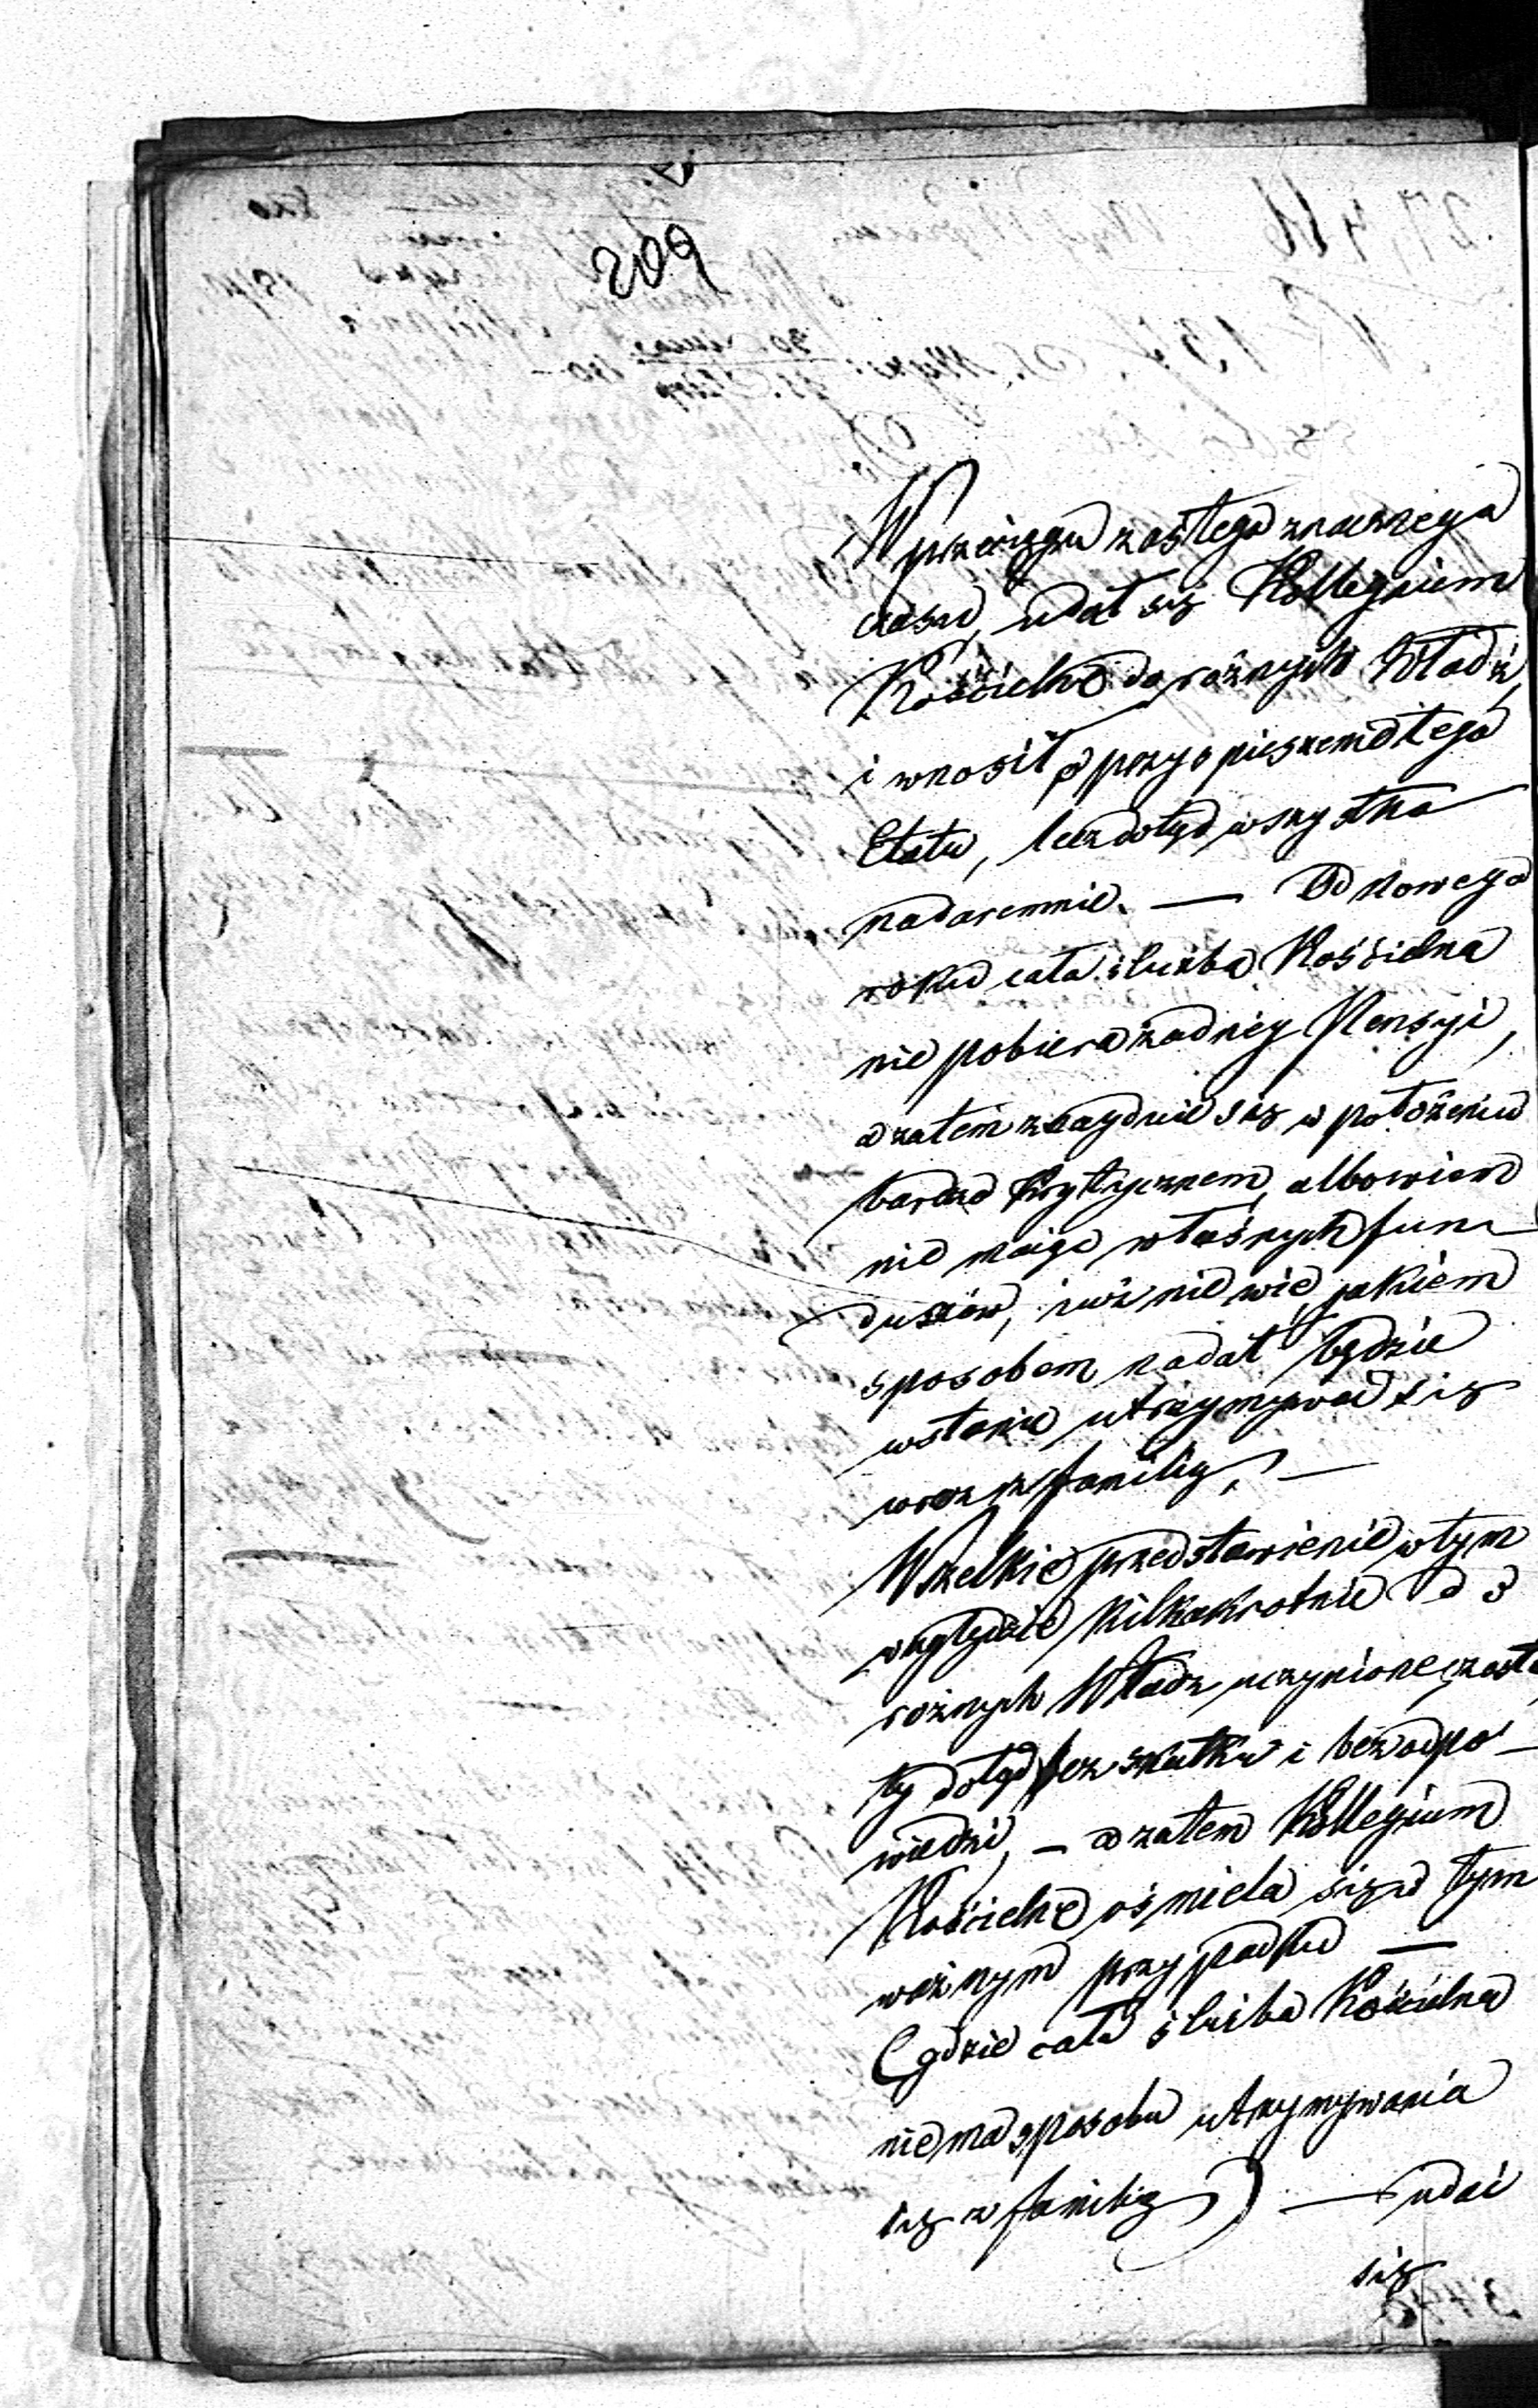 209
W przeciągu zaś tego znacznego
czasu, udał się Kollegium
Kościelne do różnych Władz,
i wnosił o przyspieszenie tego
Etatu, lecz dotąd wszystko
nadaremnie. — Od nowego
roku cała służba Kościelna
nie pobiera żadney Pensyi,
a zatem znayduie się w położeniu
bardzo krytycznem, albowiem
nie maiąc własnych fun-
duszów, iuż nie wie, jakiem
sposobem nadal będzie
wstanie utrzymywać się
wraz z familią. —
Wszelkie przedstawienie w tym
względzie kilkakrotnie do
rożnych Władz uczynione, zosta
ły dotąd bez skutku i bez odpo-
wiedzi, — a zatem Kollegium
Kościelne ośmiela się w tym
ważnym przypadku —
(gdzie cała służba Kościelna
nie ma sposobu utrzymywania
się z familią) — udać
się